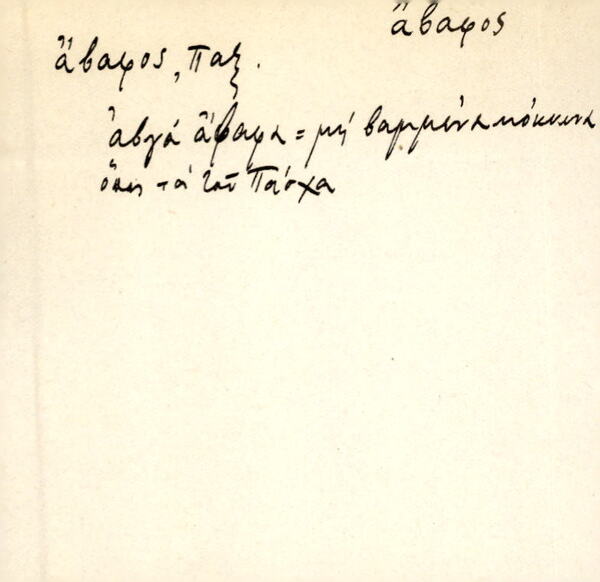 ἄβαφος
ἄβαφος, Παξ.
ἀβγά ἄβαφα = μή βαμμένα κόκκινα
ὅπως τά τοῦ Πάσχα